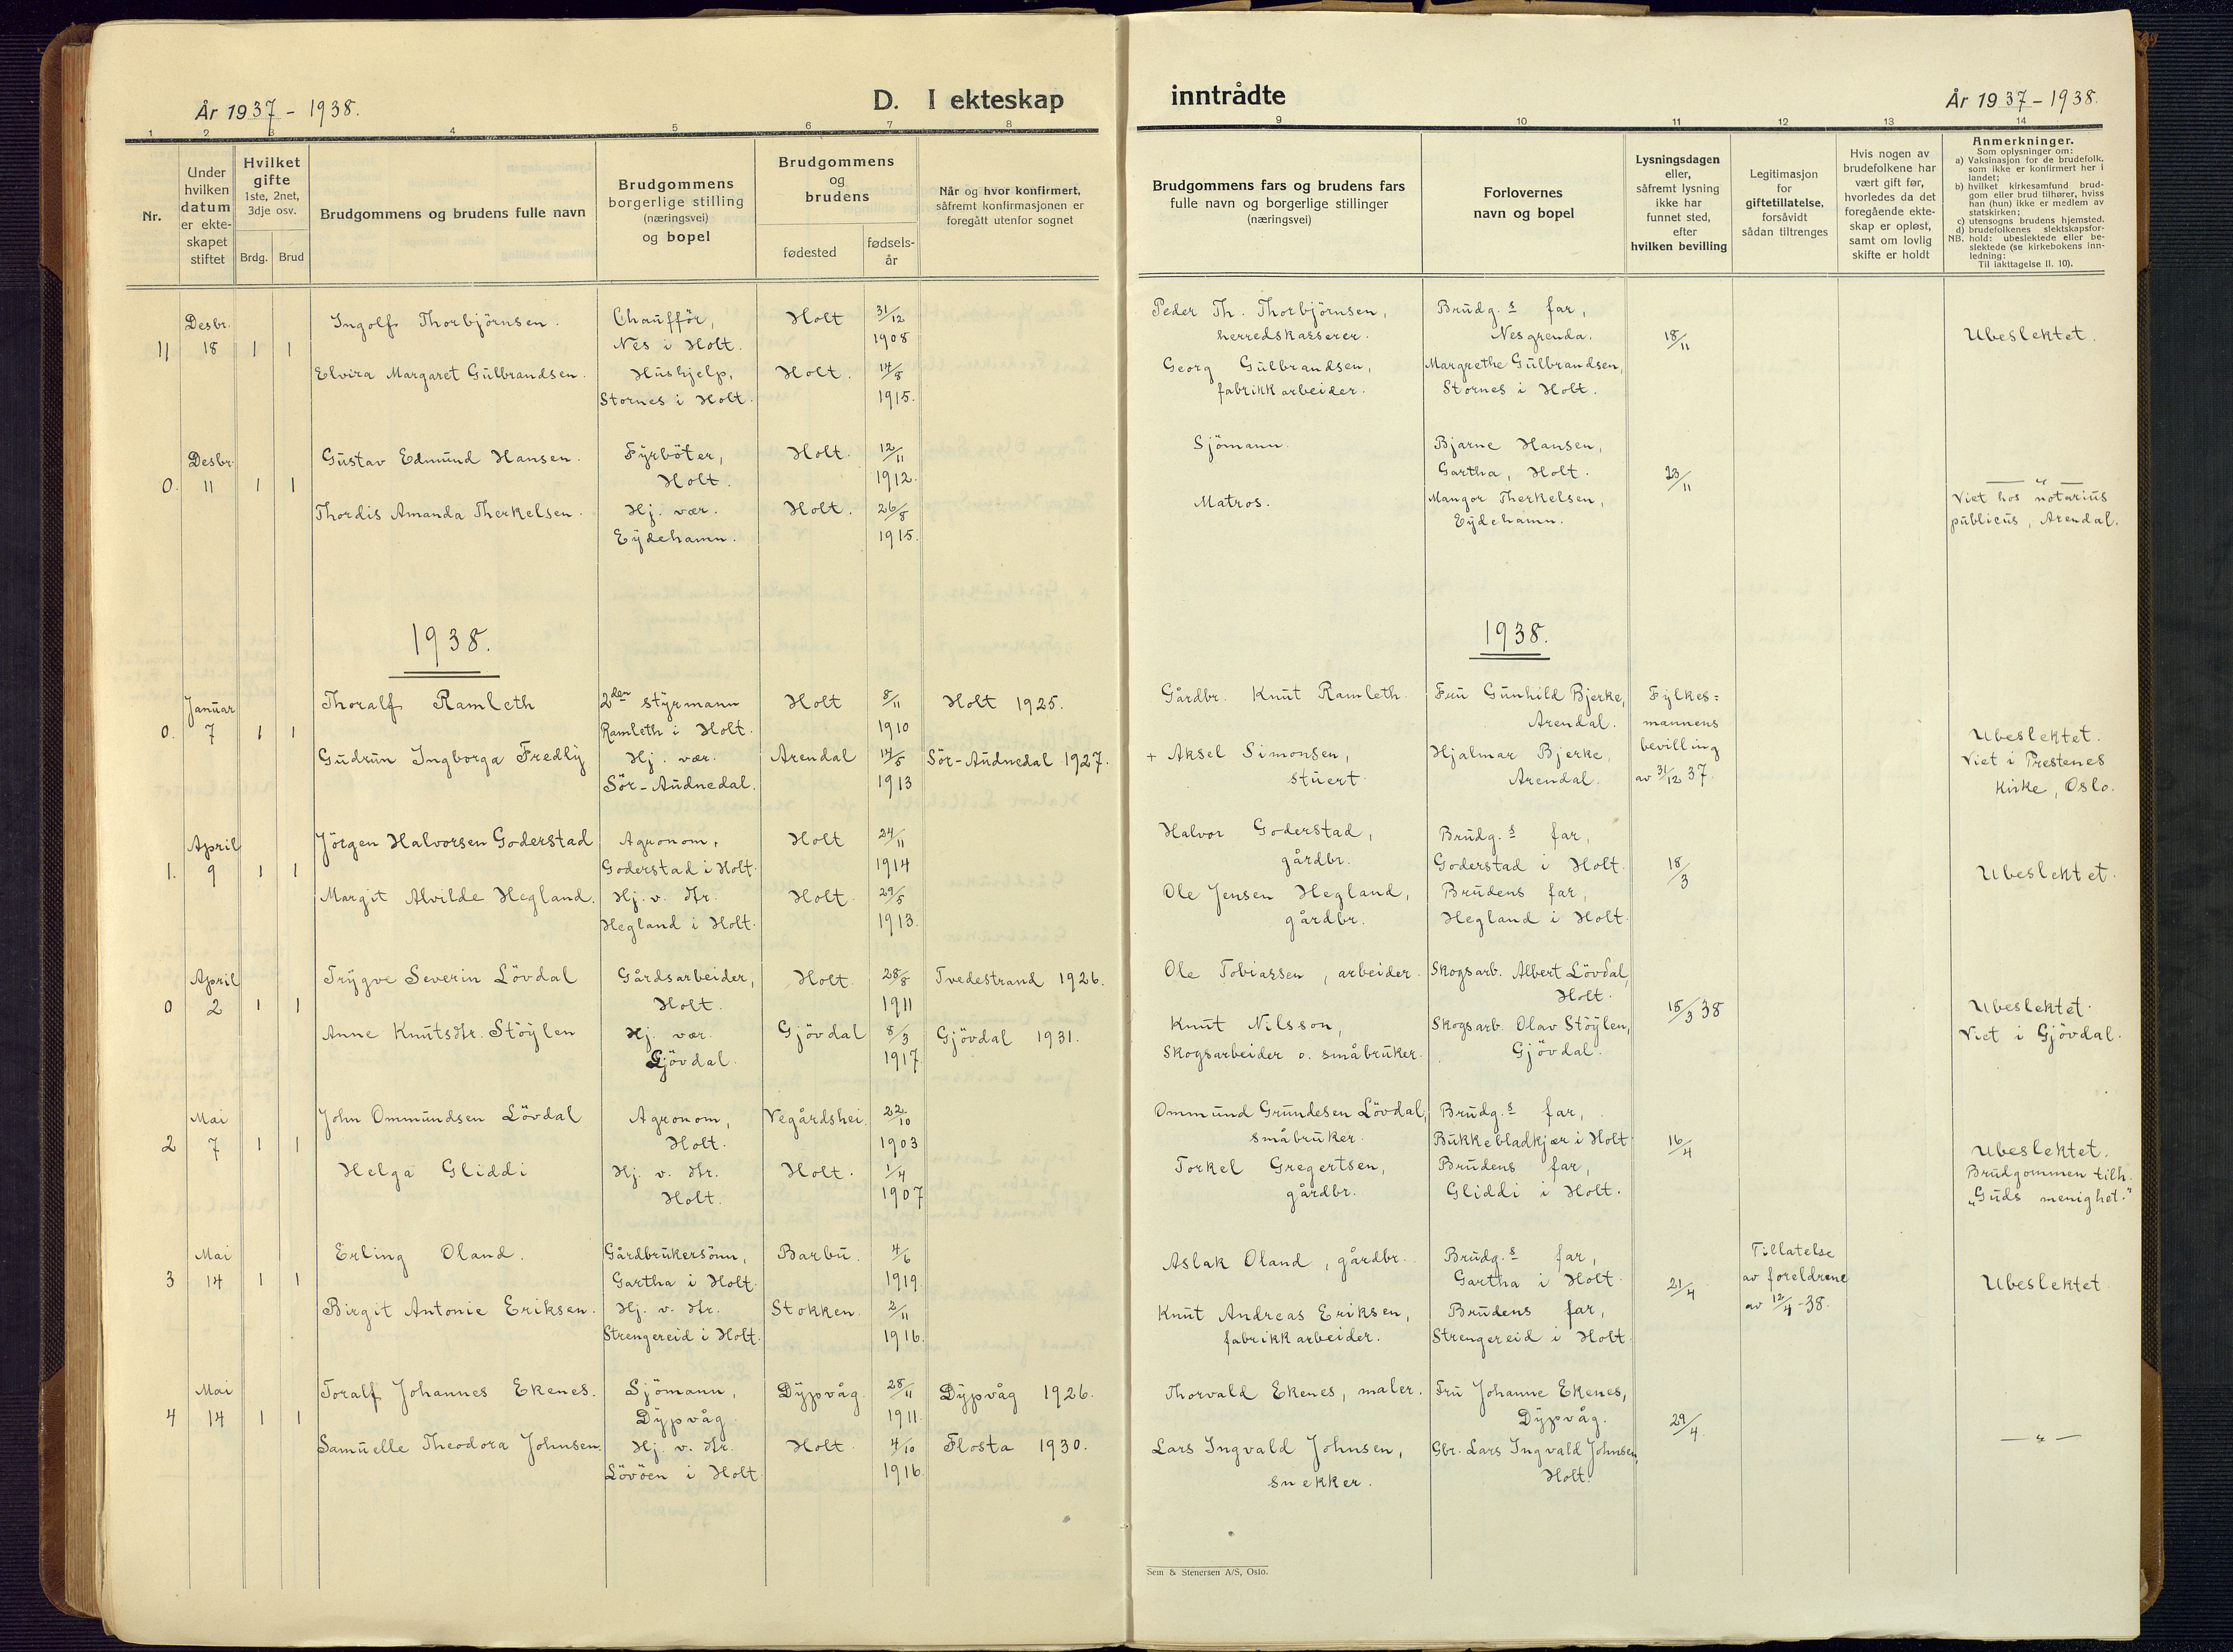 År 1937 - 1938.
D. I ekteskap
inntrådte
År 1937 - 1938.
1 2 3 4 5 6 7 8 9 10 11 12 13 14
Nr.
Under
hvilken
datum
er ekte-
skapet
stiftet
Hvilket
gifte
1ste, 2net,
3dje osv.
Brdg. Brud
Brudgommens og brudens fulle navn
Brudgommens
borgerlige stilling
(næringsvei)
og bopel
Brudgommens
og
brudens
fødested
fødsels-
år
Når og hvor konfirmert,
såfremt konfirmasjonen er
foregått utenfor sognet
Brudgommens fars og brudens fars
fulle navn og borgerlige stillinger
(næringsvei)
Forlovernes
navn og bopel
Lysningsdagen
eller,
såfremt lysning
ikke har
funnet sted,
efter
hvilken bevilling
Legitimasjon
for
giftetillatelse,
forsåvidt
sådan tiltrenges
Hvis nogen av
brudefolkene har
vært gift før,
hvorledes da det
foregående ekte-
skap er opløst,
samt om lovlig
skifte er holdt
Anmerkninger.
Som oplysninger om:
a) Vaksinasjon for de brudefolk.
som ikke er konfirmert her i
landet;
b) hvilket kirkesamfund brud-
gom eller brud tilhører, hviss
han (hun) ikke er medlem av
statskirken;
c) utensogns brudens hjemsted.
d) brudefolkenes slektskapsfor-
NB. hold: ubeslektede eller be-
slektede (se kirkebokens inn-
ledning:
Til iakttagelse II. 10).
Desbr. Ingolf Thorbjörnsen. Chaufför, Holt 31/12 Peder Th. Thorbjörnsen, Brudg.s far,
11 18 1 1 Nes i Holt. 1908 herredskasserer. Nesgrenda. 18/11 Ubeslektet.
Elvira Margaret Gulbrandsen. Hushjelp, Holt. 14/8 Georg Gulbrandsen, Margrethe Gulbrandsen,
Stornes i Holt. 1915. fabrikkarbeider. Stornes i Holt.
Desbr. Gustav Edmund Hansen. Fyrböter, Holt. 12/11 Sjömann. Bjarne Hansen,
0. 11 1 1 Holt. 1912. Gartha, Holt. 23/11 — " —
Thordis Amanda Therkelsen. Hj. vær. Holt. 26/8 Matros. Mangor Therkelsen, Viet hos notarius
Eydehamn. 1915. Eydehamn. publicus, Arendal.
1938.
1938.
Januar Thoralf Ramleth 2den styrmann Holt 8/11 Holt 1925. Gårdbr. Knut Ramleth. Fru Gunhild Bjerke, Fylkes=
0. 7 1 1 Ramleth i Holt. 1910 Arendal. mannens Ubeslektet.
Gudrun Ingborga Fredly Hj. vær. Arendal 14/5 Sör-Audnedal 1927. + Aksel Simonsen, Hjalmar Bjerke, bevilling Viet i Prestenes
Sör-Audnedal. 1913 stuert. Arendal. av 31/12 37. kirke, Oslo.
April Jörgen Halvorsen Goderstad Agronom, Holt 24/11 Halvor Goderstad, Brudg.s far,
1. 9 1 1 Goderstad i Holt. 1914 gårdbr. Goderstad i Holt. 18/3 Ubeslektet.
Margit Alvilde Hegland. Hj. v. dtr. Holt. 29/5 Ole Jensen Hegland, Brudens far,
Hegland i Holt. 1913. gårdbr. Hegland i Holt.
April Trygve Severin Lövdal Gårdsarbeider, Holt. 28/8 Tvedestrand 1926. Ole Tobiassen, arbeider. Skogsarb. Albert Lövdal,
0 2 1 1 Holt. 1911 Holt. 15/3 38 Ubeslektet.
Anne Knutsdtr. Stöylen Hj. vær. Gjövdal 8/3 Gjövdal 1931. Knut Nilsson, Skogsarb. Olav Stöylen, Viet i Gjövdal.
Gjövdal. 1917. Skogsarbeider o. småbruker. Gjövdal.
Mai John Ommundsen Lövdal Agronom, Vegårdshei. 22/10 Ommund Grundesen Lövdal, Brudg.s far,
2 7 1 1 Holt. 1903 småbruker. Bukkebladkjær i Holt. 16/4 Ubeslektet.
Helga Gliddi Hj. v. dtr. Holt. 1/4 Torkel Gregertsen, Brudens far, Brudgommen tilh.
Holt. 1907 gårdbr. Gliddi i Holt. „Guds menighet."
Mai Erling Oland. Gårdbrukersönn, Barbu. 4/6 Aslak Oland, gårdbr. Brudg.s far, Tillatelse
3 14 1 1 Gartha i Holt. 1919. Gartha i Holt 21/4 av foreldrene Ubeslektet
Birgit Antonie Eriksen. Hj. v. dtr. Stokken. 2/11 Knut Andreas Eriksen, Brudens far, av 12/4-38.
Strengereid i Holt. 1916. fabrikkarbeider. Strengereid i Holt.
Mai Toralf Johannes Ekenes. Sjömann, Dypvåg. 28/11 Dypvåg 1926. Thorvald Ekenes, maler. Fru Johanne Ekenes,
4 14 1 1 Dypvåg 1911. Dypvåg. 29/4 — " —
Samuelle Theodora Johnsen. Hj. v. dtr. Holt. 4/10 Flosta 1930. Lars Ingvald Johnsen, Gbr. Lars Ingvald Johnsen,
Lövöen i Holt. 1916. snekker. Holt.
Sem & Stenersen A/S, Oslo.